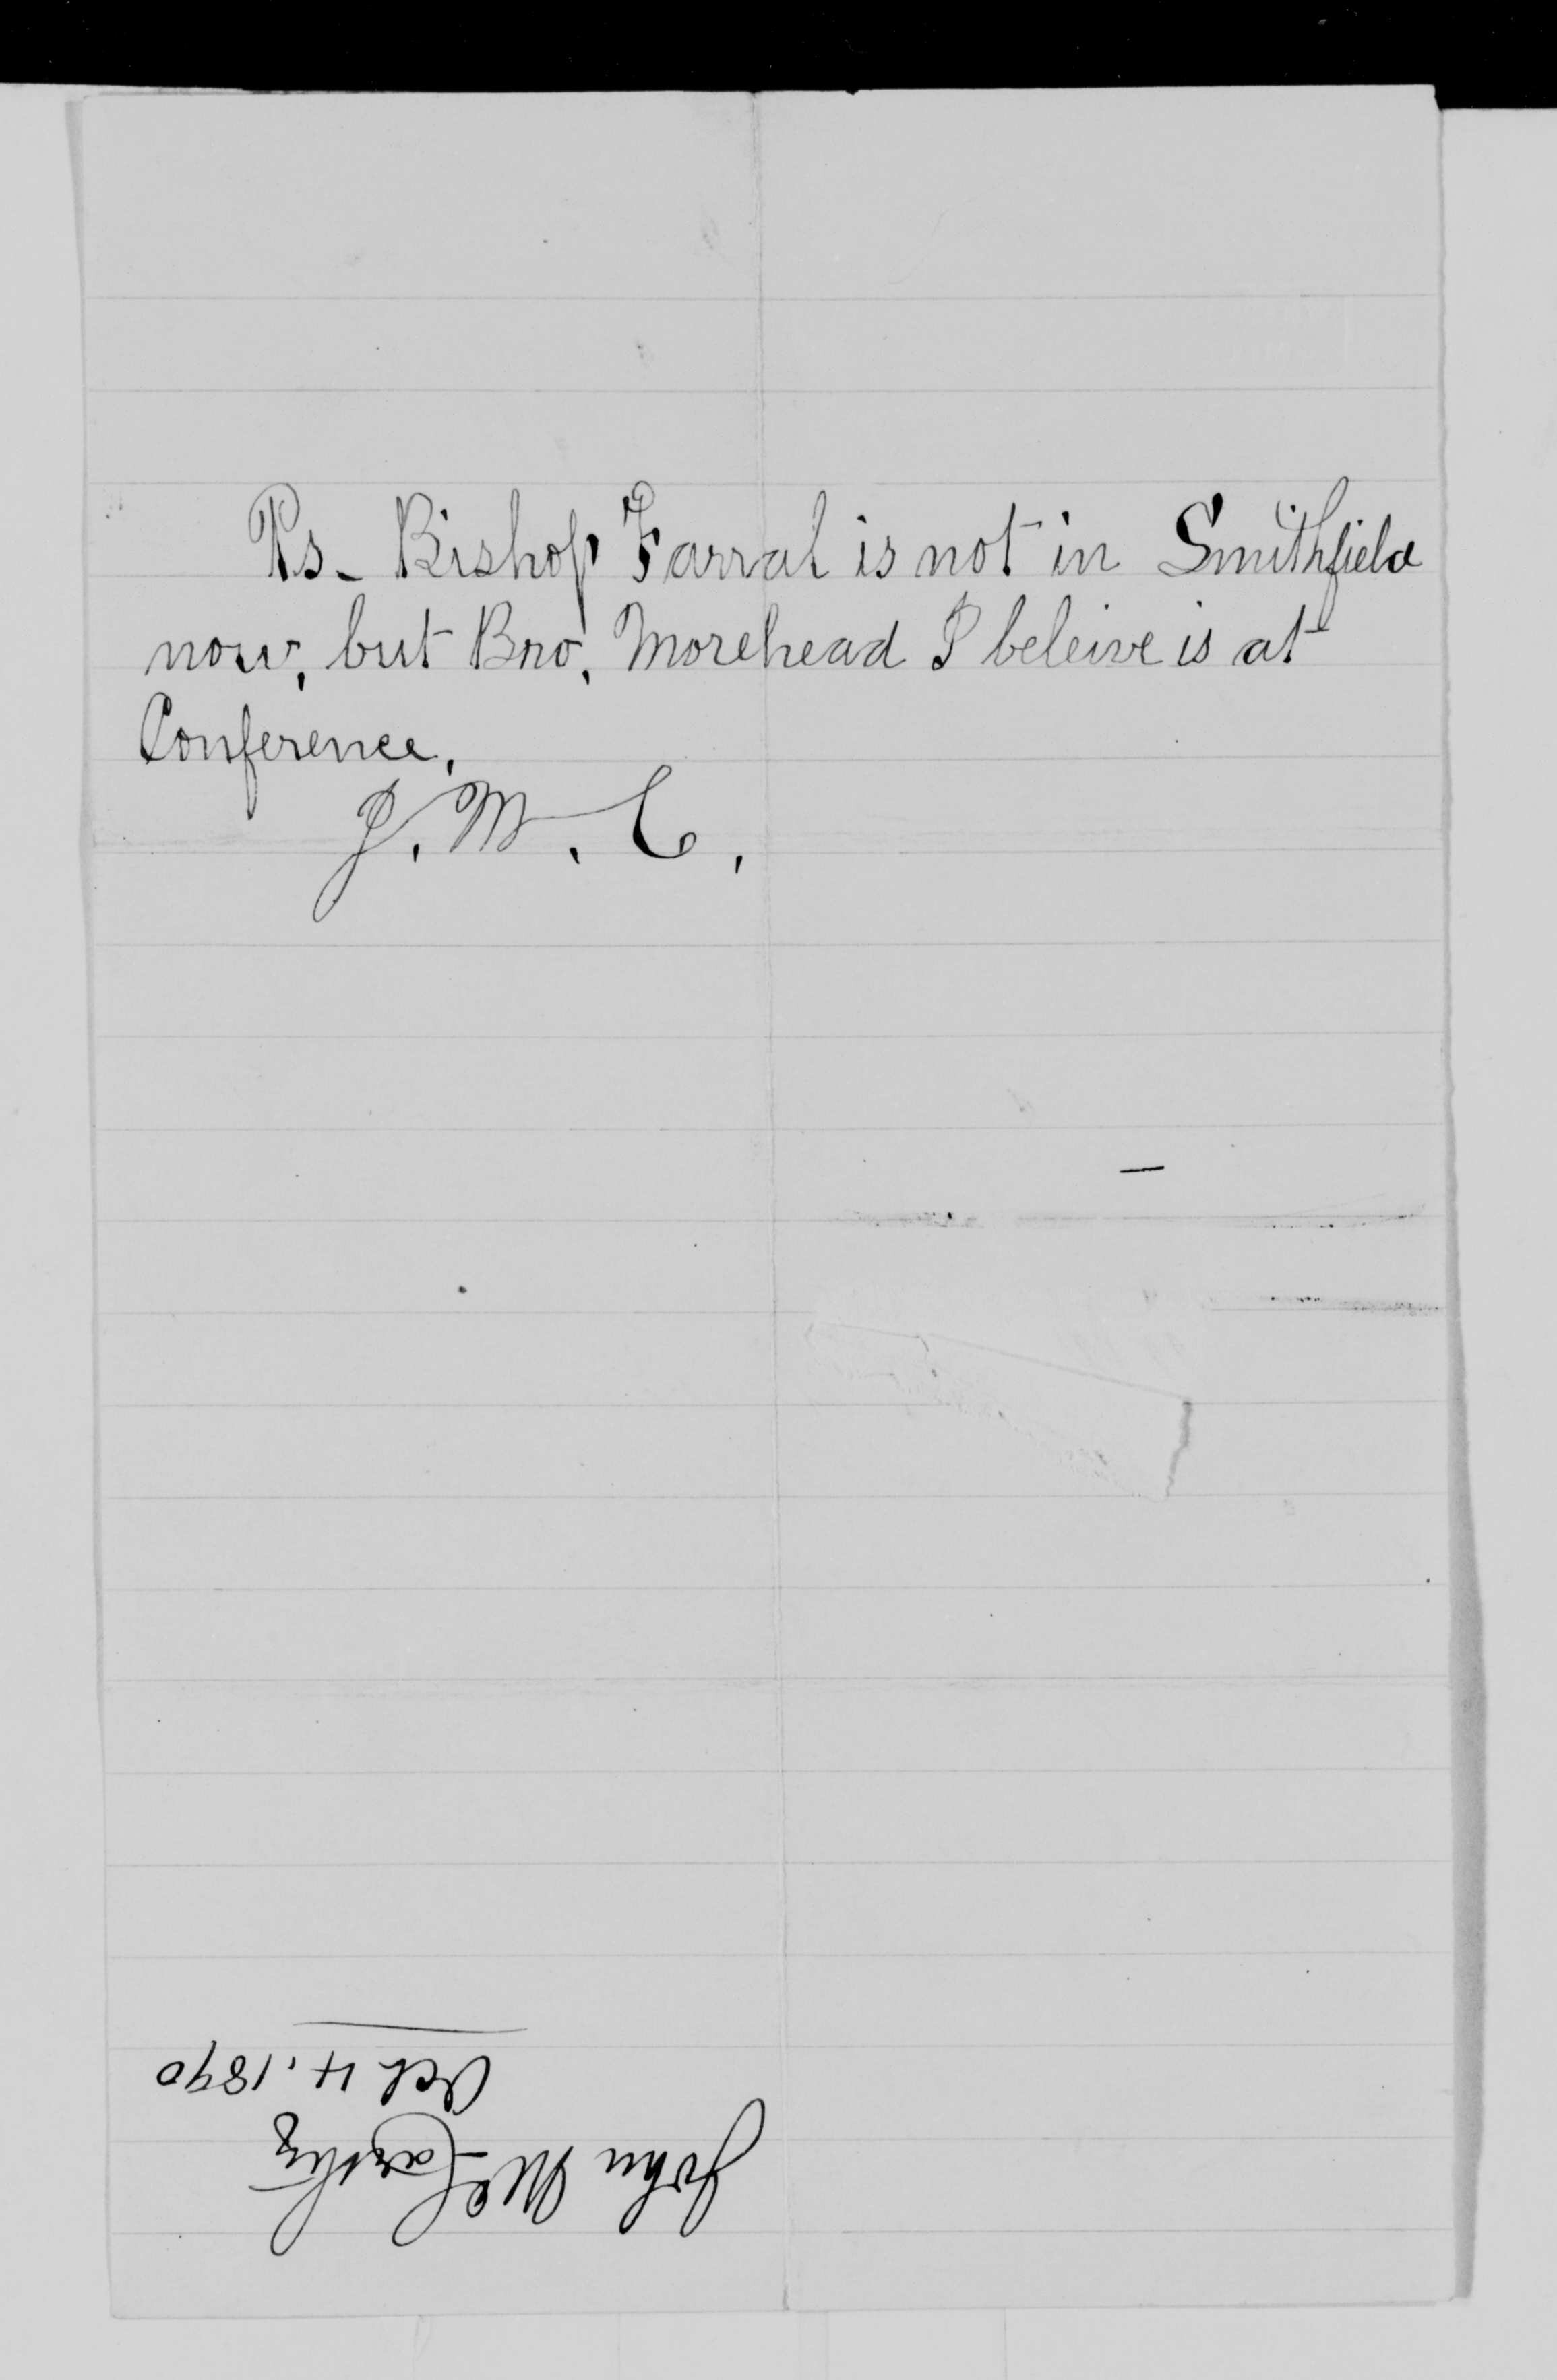 Ps. Bishop Farral is not in Smithfield
now, but Bro. Morehead I beleive is at
Conference.
J. M. C.
John McCarthy
Oct 4. 1890